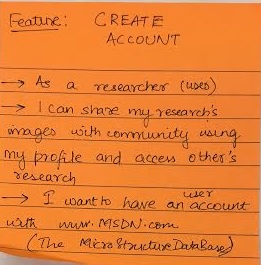 Feature: CREATE
ACCOUNT
→ As a researcher (user)
→ I can share my research's
images with community using
my profile and access other's
research
→ I want to have an user account
with www.MSDN.com
(The MicroStructure DataBase)